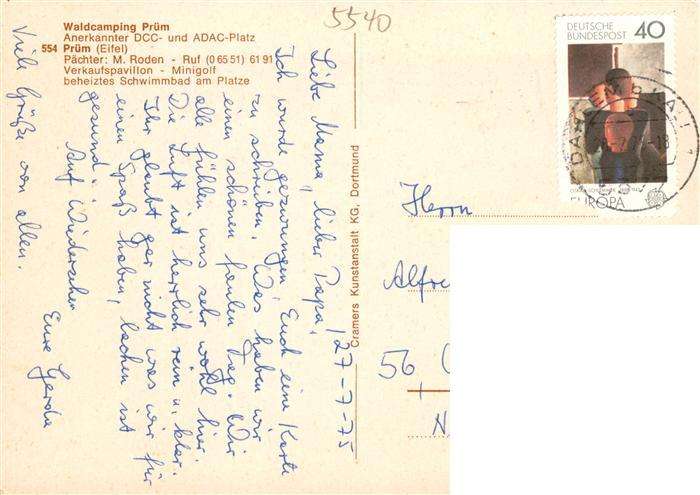 5540
Waldcamping Prüm
Anerkannter DCC- und ADAC-Platz
554 Prüm (Eifel)
Pächter: M. Roden - Ruf (0 65 51) 61 91
Verkaufspavillon - Minigolf
beheiztes Schwimmbad am Platze
27-7-75
Liebe Mama, lieber Papa,
Ich wurde gezwungen Euch eine Karte
zu schreiben. Was haben wir
einen schönen faulen Tag. Wir
alle fühlen uns sehr wohl hier.
Die Luft ist herrlich rein u. klar.
Ihr glaubt gar nicht was wir für
einen Spaß haben, lachen ist
gesund.
Auf Wiedersehen
Eure Gerda
Viele Grüße von allen.
Cramers Kunstanstalt KG, Dortmund
DEUTSCHE
BUNDESPOST 40
EUROPA
Herrn
Alfre
56